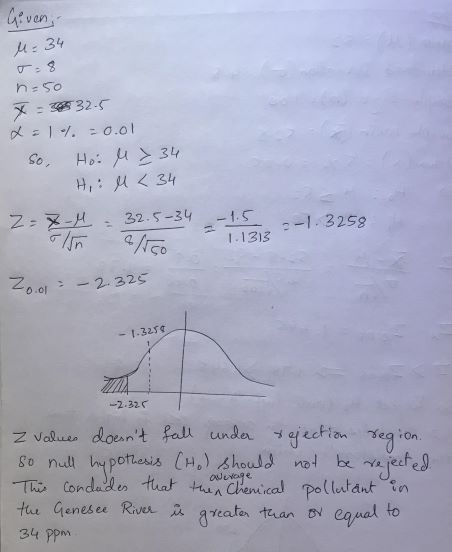 Given:-
μ = 34
σ = 8
n = 50
x̄ = 32.5
α = 1 % = 0.01
So, H₀: μ ≥ 34
H₁: μ < 34
Z = x̄ - μ / σ/√n = 32.5 - 34 / 8/√50 = -1.5 / 1.1313 = -1.3258
Z₀.₀₁ = - 2.325
- 1.3258
-2.325
Z values doesn't fall under rejection region.
So null hypothesis (H₀) should not be rejected
This concludes that the average Chemical pollutant in
the Genesee River is greater than or equal to
34 ppm.